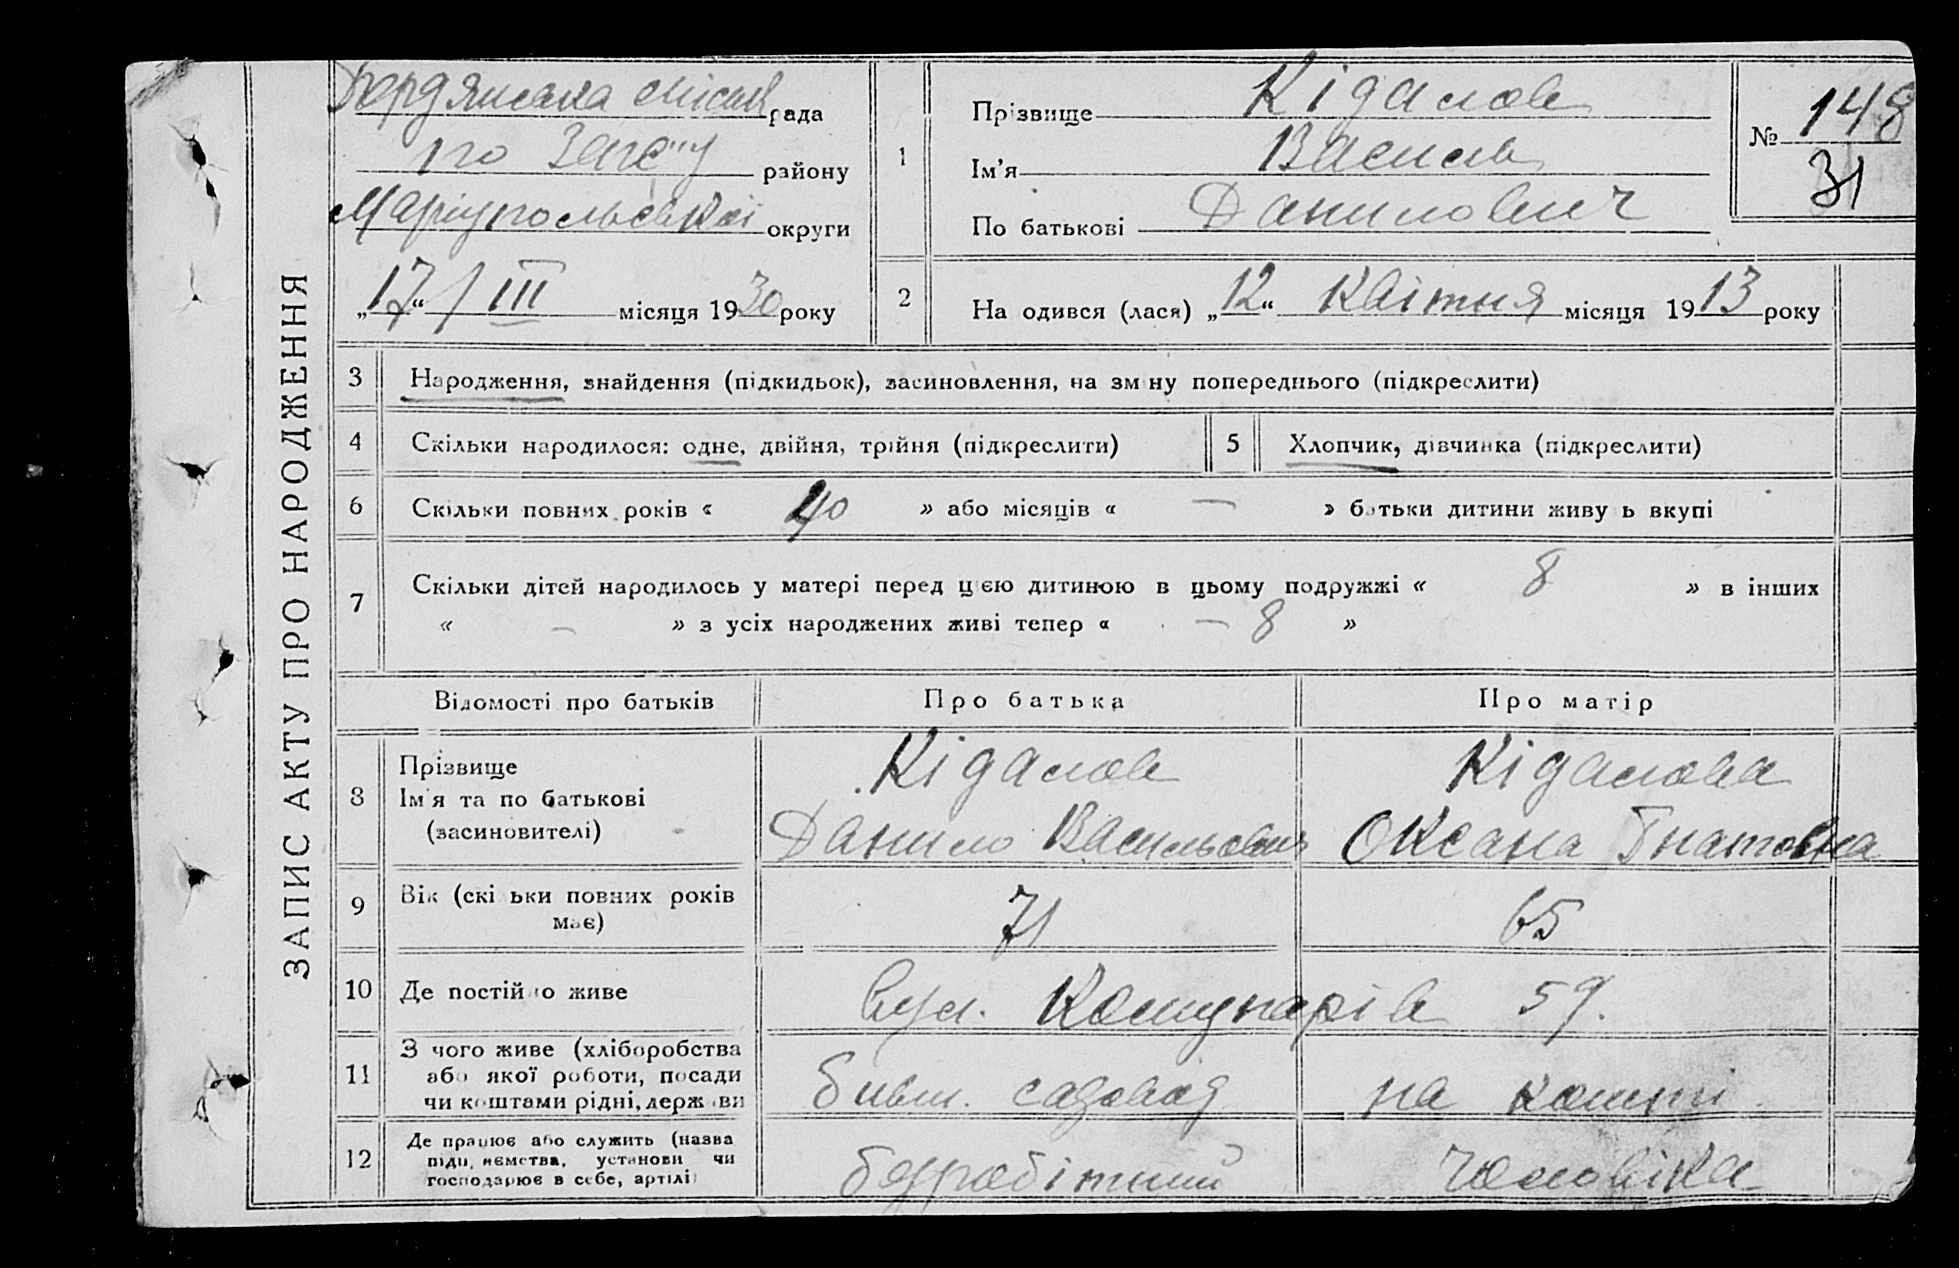 ЗАПИС АКТУ ПРО НАРОДЖЕННЯ
Бердянська міська рада
по Загсу району
Маріупольської округи
„17“ / III місяця 1930 року
1
Прізвище Кідалов
Ім’я Василь
По батькові Данилович
№ 148
31
2 На одився (лася) „12“ Квітня місяця 1913 року
3 Народження, знайдення (підкидьок), засиновлення, на зм ну попереднього (підкреслити)
4 Скільки народилося: одне, двійня, трійня (підкреслити)
5 Хлопчик, дівчинка (підкреслити)
6 Скільки повних років « 40 » або місяців « — » батьки дитини живу ь вкупі
7 Скільки дітей народилось у матері перед цією дитиною в цьому подружжі « 8 » в інших
« — » з усіх народжених живі тепер « — 8 »
Відомості про батьків Про батька Про матір
8 Прізвище
Ім'я та по батькові
(засиновителі)
Кідалов
Данило Васильович
Кідалова
Оксана Гнатовна
9 Вік (скі ьки повних років
має)
71
65
10 Де постійно живе
вул. Комунарів 59.
11 З чого живе (хліборобства
або якої роботи, посади
чи коштами рідні, держ ви
бивш. садовод
на кошті
12 Де працює або служить (назва
підп, иємства, установи чи
господарює в себе, артілі)
безробітний
чоловіка